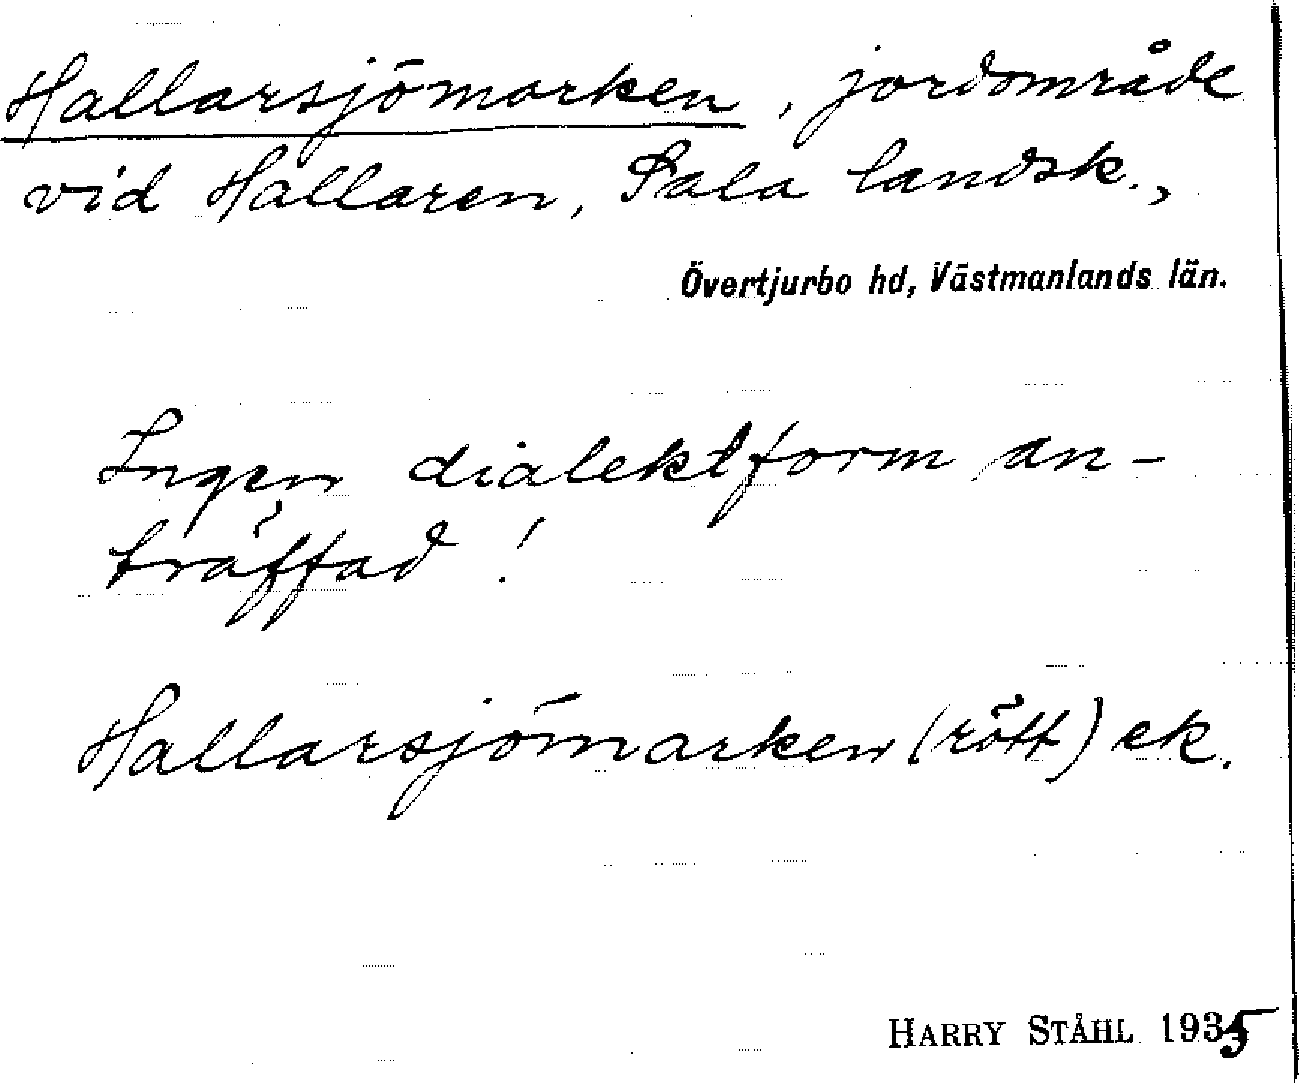 Hallarsjömarken, jordområde
vid Hallaren, Sala landsk.,
Övertjurbo hd, Västmanlands län.
Ingen dialektform an-
träffad!
Hallarsjömarken (rött) ek.
HARRY STÅHL 1935